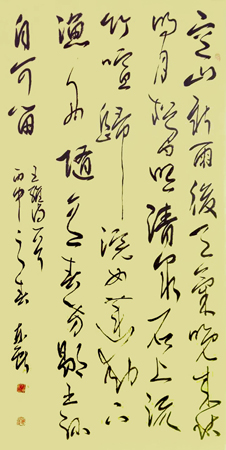 空山新雨後天氣晚來秋
明月松間照清泉石上流
竹喧歸浣女蓮動下
漁舟隨意春芳歇王孫
自可留
王維詩一首
丙申之春